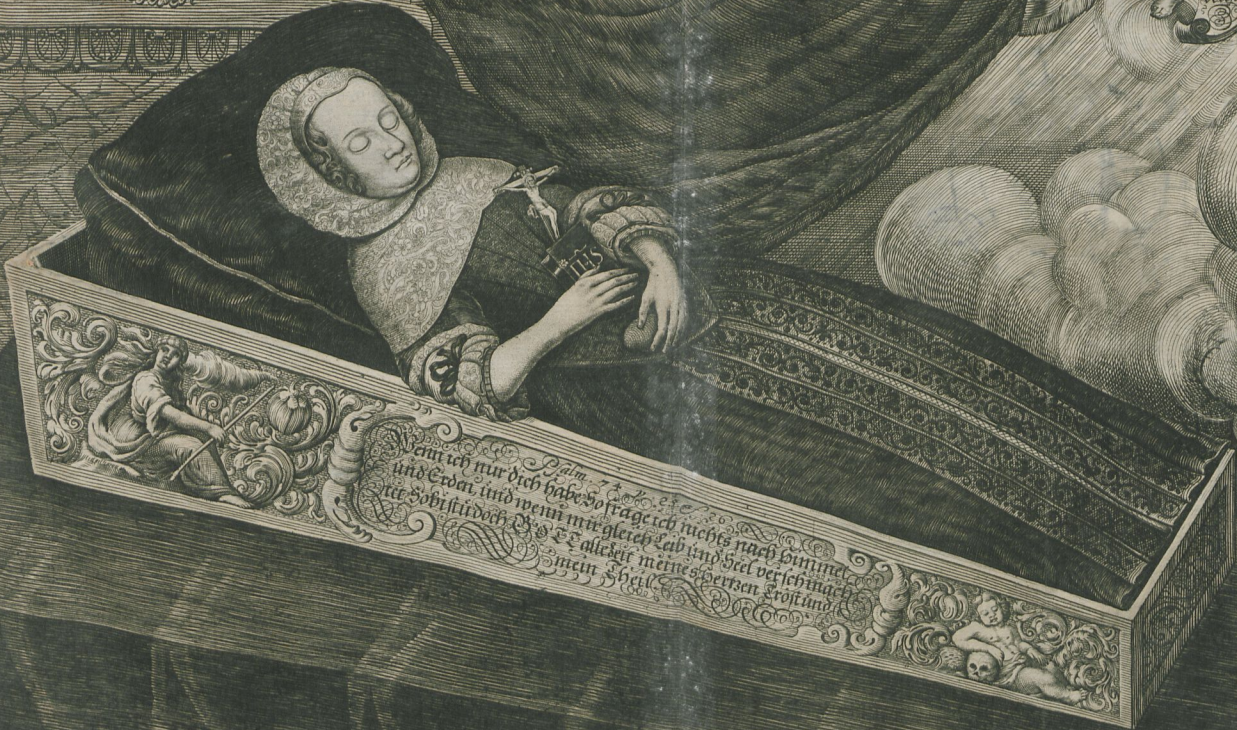 IHS
Psalm. 73. V. 25. 26.
Wenn ich nur dich habe So frage ich nichts nach himmel
und Erden, und wenn mir gleich Leib und Seel verschmacht
tet Sobistu doch GOTT allezeit meines Hertzen Trost und
mein Theil